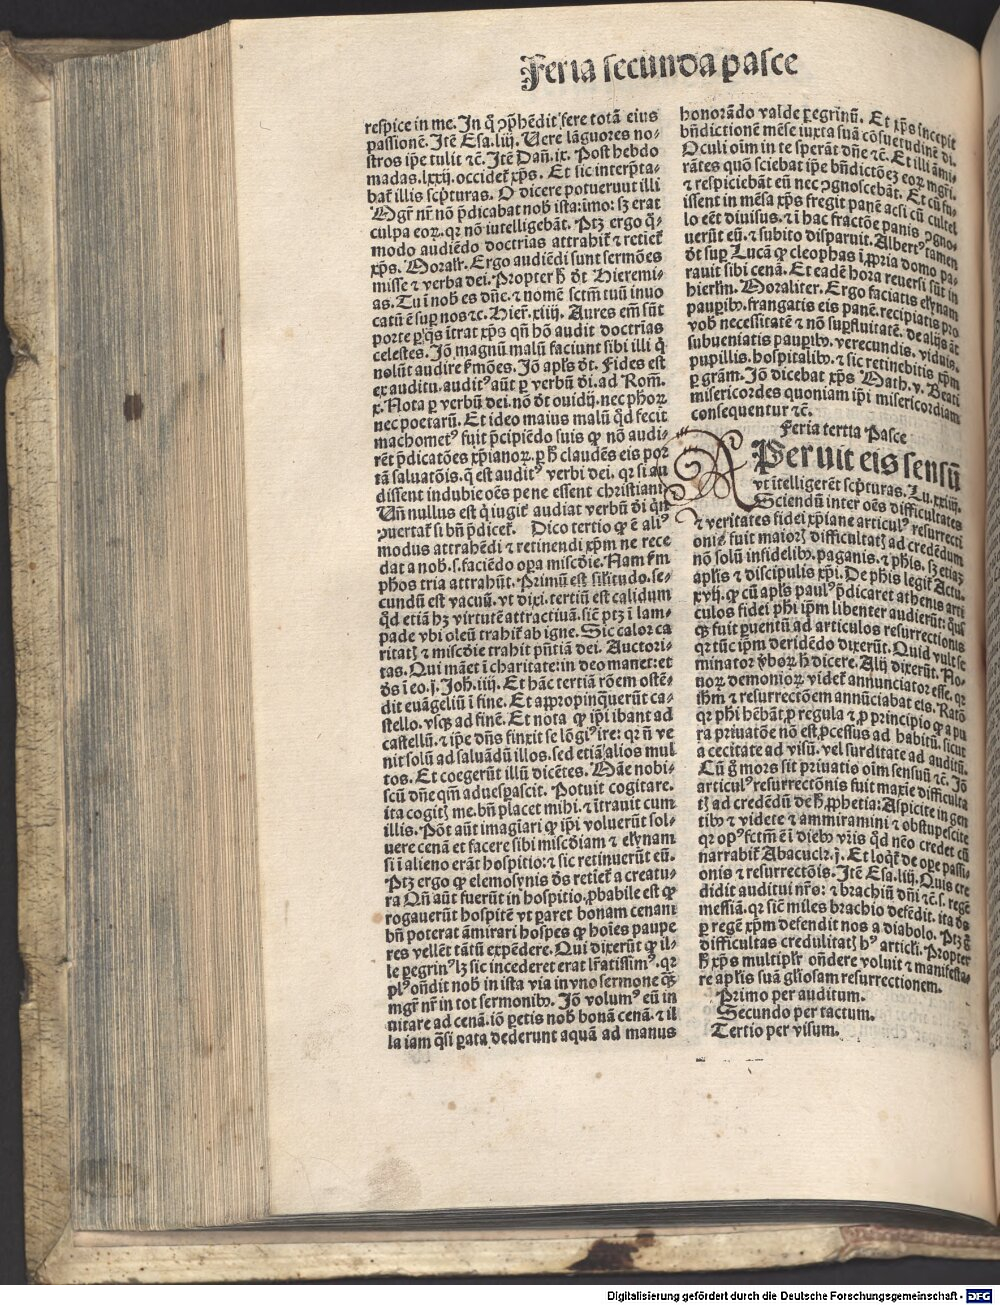 Feria secunda pasce
respice in me. In q̄ ꝯp̄hēdit fere totā eius
passionē. Itē Esa. liij. Vere lāguores no-
stros ip̄e tulit ⁊c̄. Itē Dan̄. ix. Post hebdo
madas. lxxij. occidet᷑ xp̄s. Et sic interp̄ta-
bat᷑ illis sc̄pturas. O dicere potueruut illi
Mgr̄ nr̄ nō p̄dicabat nob̄ ista: imo: sꝫ erat
culpa eoꝝ. qꝛ nō iutelligebāt. Ptꝫ ergo q̄-
modo audiēdo doctrias attrahit᷑ ⁊ retiet᷑
xp̄s. Moralr̄. Ergo audiēdi sunt sermōes
misse ⁊ verba dei. Propter h̄ dt̄ Hieremi-
as. Tu ī nob̄ es dn̄e. ⁊ nomē sctm̄ tuū inuo
catū ē suꝑ nos ⁊c. Hier̄. xiiij. Aures em̄ sūt
porte ꝑ q̄s ītrat xp̄s qn̄ hō audit doctrias
celestes. Jō magnū malū faciunt sibi illi q̄
nolūt audire ẜmōes. Jō apl̄s dt̄. Fides est
ex auditu. auditꝰ aūt ꝑ verbū dī. ad Rom̄.
x. Nota ꝑ verbū dei. nō dt̄ ouidij. nec ph̄oꝝ
nec poetarū. Et ideo maius malū qd̄ fecit
machometꝰ fuit p̄cipiēdo suis ꝙ nō audi-
rēt p̄dicatōes xp̄ianoꝝ. ꝑ h̄ claudēs eis por
tā saluatōis. q̄ est auditꝰ verbi dei. qꝛ si au
dissent indubie oēs pene essent christiani.
Vn̄ nullus est q̄ iugit᷑ audiat verbū dī qn̄
ꝯuertat᷑ si bn̄ p̄dicet᷑. Dico tertio ꝙ ē aliꝰ
modus attrahēdi ⁊ retinendi xp̄m ne rece
dat a nob̄. s. faciēdo oꝑa misc̄die. Nam ẜm
ph̄os tria attrahūt. Primū est sil̄itudo. se-
cundū est vacuū. vt dixi. tertiū est calidum
qd̄ etiā hꝫ virtutē attractiuā. sic̄ ptꝫ ī lam-
pade vbi oleū trahit᷑ ab igne. Sic calor ca
ritatꝭ ⁊ misc̄die trahit pn̄tiā dei. Auctori-
tas. Qui māet ī charitate: in deo manet: et
ds̄ ī eo. j. Joh̄. iiij. Et hāc tertiā rōem ostē-
dit euāgeliū ī fine. Et appropinquerūt ca-
stello. vsqꝫ ad finē. Et nota ꝙ ip̄i ibant ad
castellū. ⁊ ip̄e dn̄s finxit se lōgiꝰ ire: qꝛ n̄ ve
nit solū ad saluādū illos. sed etiā alios mul
tos. Et coegerūt illū dicētes. Māe nobi-
scū dn̄e qm̄ aduesꝑascit. Potuit cogitare.
ita cogitꝭ me. bn̄ placet mihi. ⁊ ītrauit cum
illis. Pōt aūt imagīari ꝙ ip̄i voluerūt sol-
uere cenā et facere sibi misc̄diam ⁊ elynam
si ī alieno erāt hospitio: ⁊ sic retinuerūt eū.
Ptꝫ ergo ꝙ elemosynis ds̄ retiet᷑ a creatu-
ra Qn̄ aūt fuerūt in hospitio. ꝓbabile est ꝙ
rogauerūt hospitē vt ꝑaret bonam cenam
bn̄ poterat āmirari hospes ꝙ hoīes pauꝑe
res vellēt tātū expēdere. Qui dixerūt ꝙ il-
le ꝑegrinꝰ lꝫ sic incederet erat lr̄atissimꝰ. qꝛ
plꝰ on̄dit nob̄ in ista via in vno sermone q̄ꝫ
mgr̄ nr̄ in tot sermonibꝰ. Jō volumꝰ eū in
uitare ad cenā. iō ꝑetis nob̄ bonā cenā. ⁊ il
la iam q̄si ꝑata dederunt aquā ad manus
honorādo valde ꝑegrinū. Et xp̄s incepit
bn̄dictionē mēse iuxta suā cōsuetudinē di.
Oculi oim̄ in te sperāt dn̄e ⁊c̄. Et illi āmi-
rātes quō sciebat ip̄e bn̄dictōeꝫ eoꝝ mgr̄i.
⁊ respiciebāt eū nec ꝯgnoscebāt. Et cū fu-
issent in mēsa xp̄s fregit panē acsi cū cultel
lo eēt diuisus. ⁊ ī hac fractōe panis ꝯgno-
uerūt eū. ⁊ subito disparuit. Albertꝰ tamen
dt̄ suꝑ Lucā ꝙ cleophas ī ꝓpria domo pa-
rauit sibi cenā. Et eadē hora reuersi sūt in
hierl̄m. Moraliter. Ergo faciatis elynam
pauꝑibꝰ. frangatis eis panē. recipiatis pro
vob̄ necessitatē ⁊ nō suꝑfluitatē. de alijs āt
subueniatis pauꝑibꝰ. verecundis. viduis.
pupillis. hospitalibꝰ. ⁊ sic retinebitis xp̄m
ꝑ gr̄am. Jō dicebat xp̄s Math. v. Beati
misericordes quoniam ip̄i misericordiam
consequentur ⁊c̄.
Feria tertia Pasce
APeruit eis sensū
vt ītelligerēt sc̄pturas. Lu. xxiiij.
Sciendū inter oēs difficultates
⁊ veritates fidei xp̄iane articulꝰ resurrecti
onis fuit maiorꝭ difficultatꝭ ad credēdum
nō solū infidelibꝰ. paganis. ⁊ ph̄is. sꝫ etiaꝫ
apl̄is ⁊ discipulis xp̄i. De ph̄is legit᷑ Actu.
xvij. ꝙ cū apl̄s paulꝰ p̄dicaret athenis arti
culos fidei ph̄i ip̄m libenter audierūt: q̄usqꝫ
fuit ꝑuentū ad articulos resurrectionis
qꝛ tūc ip̄m deridēdo dixerūt. Quid vult se
minator v̄boꝝ h̄ dicere. Alij dixerūt. No-
uoꝝ demonioꝝ videt᷑ annunciator esse. qꝛ
ih̄m ⁊ resurrectōem annūciabat eis. Ratō
qꝛ ph̄i hēbāt ꝓ regula ⁊ ꝓ principio ꝙ a pu
ra priuatōe nō est ꝓcessus ad habitū. sicut
a cecitate ad visū. vel surditate ad auditū.
Cū ḡ mors sit priuatio oim̄ sensuū ⁊c̄. Jō
articulꝰ resurrectōnis fuit maxīe difficulta
tꝭ ad credēdū de h̄ ꝓphetia: Aspicite in gen
tibꝰ ⁊ videte ⁊ ammiramini ⁊ obstupescite
qꝛ opꝰ fctm̄ ē ī diebꝰ vr̄is qd̄ nēo credet cū
narrabit᷑ Abacuck. j. Et loqt᷑ de oꝑe passi-
onis ⁊ resurrectōis. Itē Esa. liij. Quis cre
didit auditui nr̄o: ⁊ brachiū dn̄i ⁊c̄. s. regē
messiā. qꝛ sic̄ miles brachio defēdit. ita ds̄
ꝑ regē xp̄m defendit nos a diabolo. Ptꝫ ḡ
difficultas credulitatꝭ hꝰ articli. Propter
h̄ xp̄s multiplr̄ on̄dere voluit ⁊ manifesta-
re apl̄is suā gl̄iosam resurrectionem.
Primo per auditum.
Secundo per tactum.
Tertio per visum.
Digitalisierung gefördert durch die Deutsche Forschungsgemeinschaft - DFG